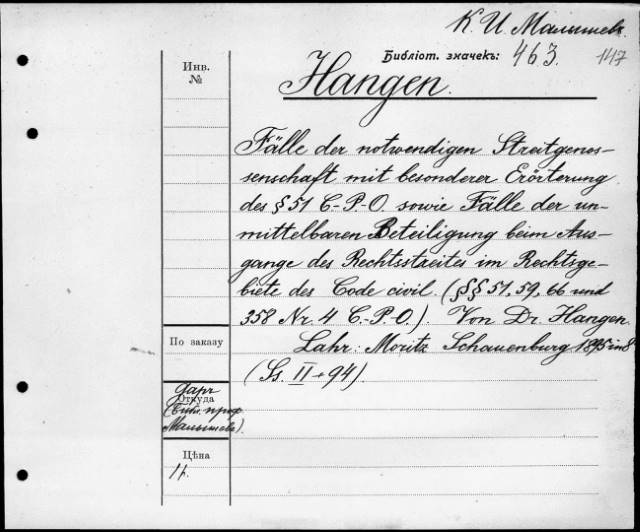 К. И. Малышевъ
Библіот. значекъ: 463. 147
Инв.
№
Hangen.
Fälle der notwendigen Streitgenos-
senschaft mit besonderer Erörterung
des § 51 C.-P.-O. sowie Fälle der un-
mittelbaren Beteiligung beim Aus-
gange des Rechtsstreites im Rechtsge-
biete des Code civil. (§§ 51, 59, 66 und
358 Nr. 4 C.-P.-O.). Von Dr. Hangen.
По заказу
Lahr: Moritz Schauenburg 1895 in 8
(Ss. II + 94).
даръ
Откуда
(Библ. проф.
Малышева).
Цѣна
1 р.